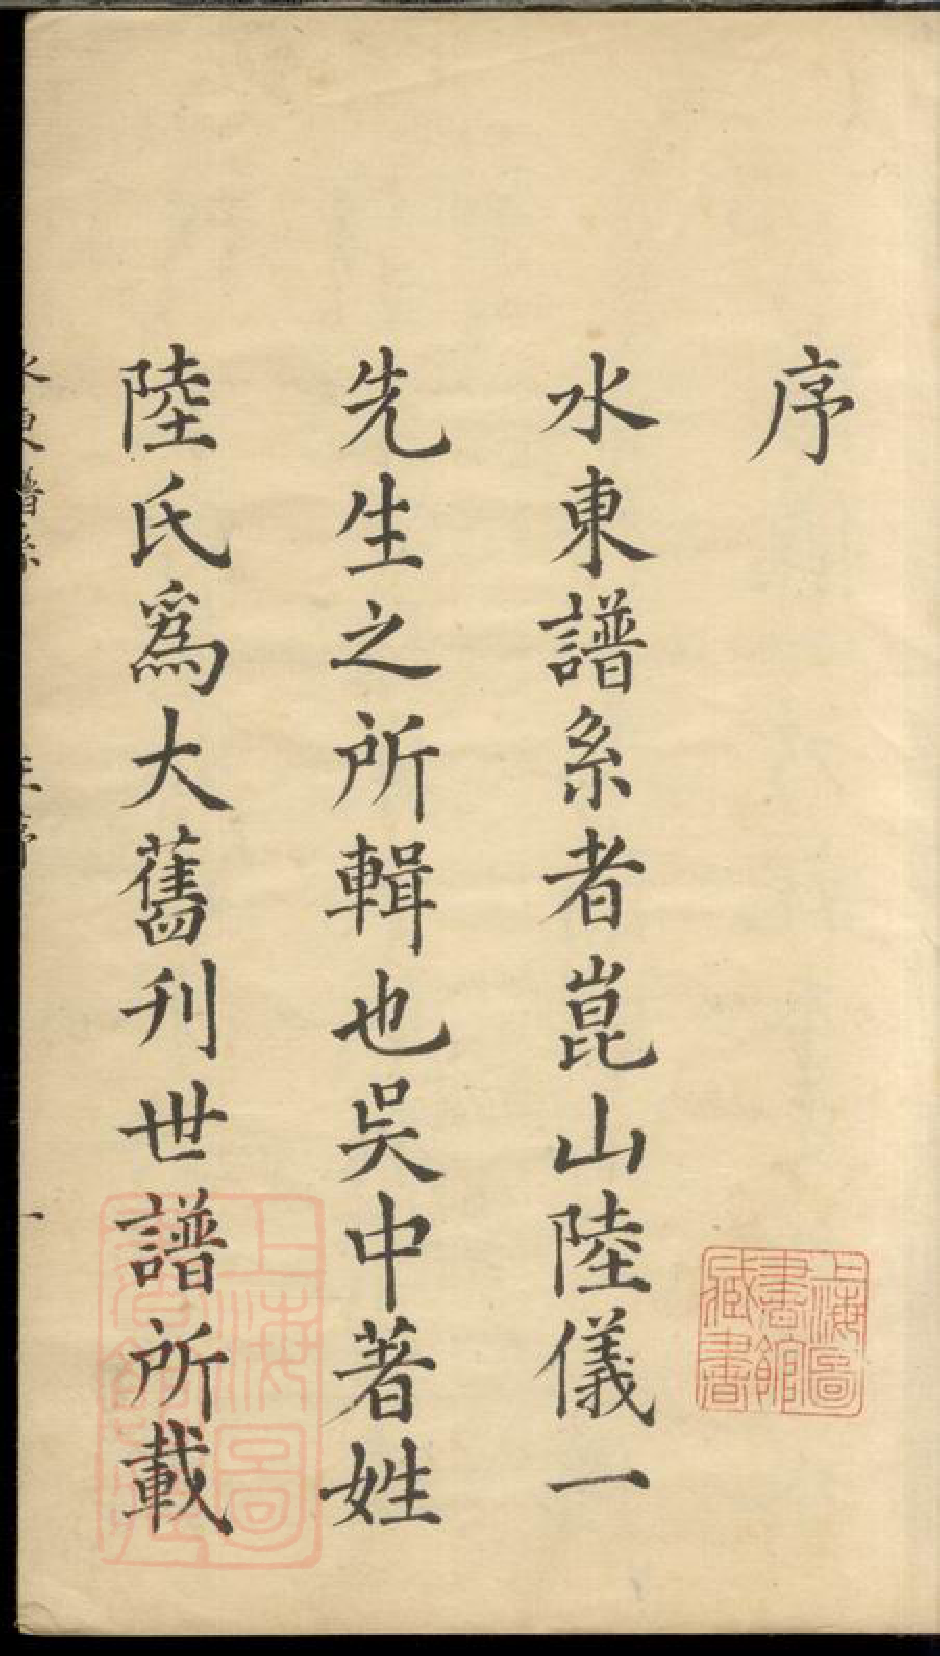 序
水東譜系者崑山陸儀一
先生之所輯也吳中著姓
陸氏爲大舊刊世譜所載
上海圖書館藏書
上海圖書館藏
水東譜系 王序 一